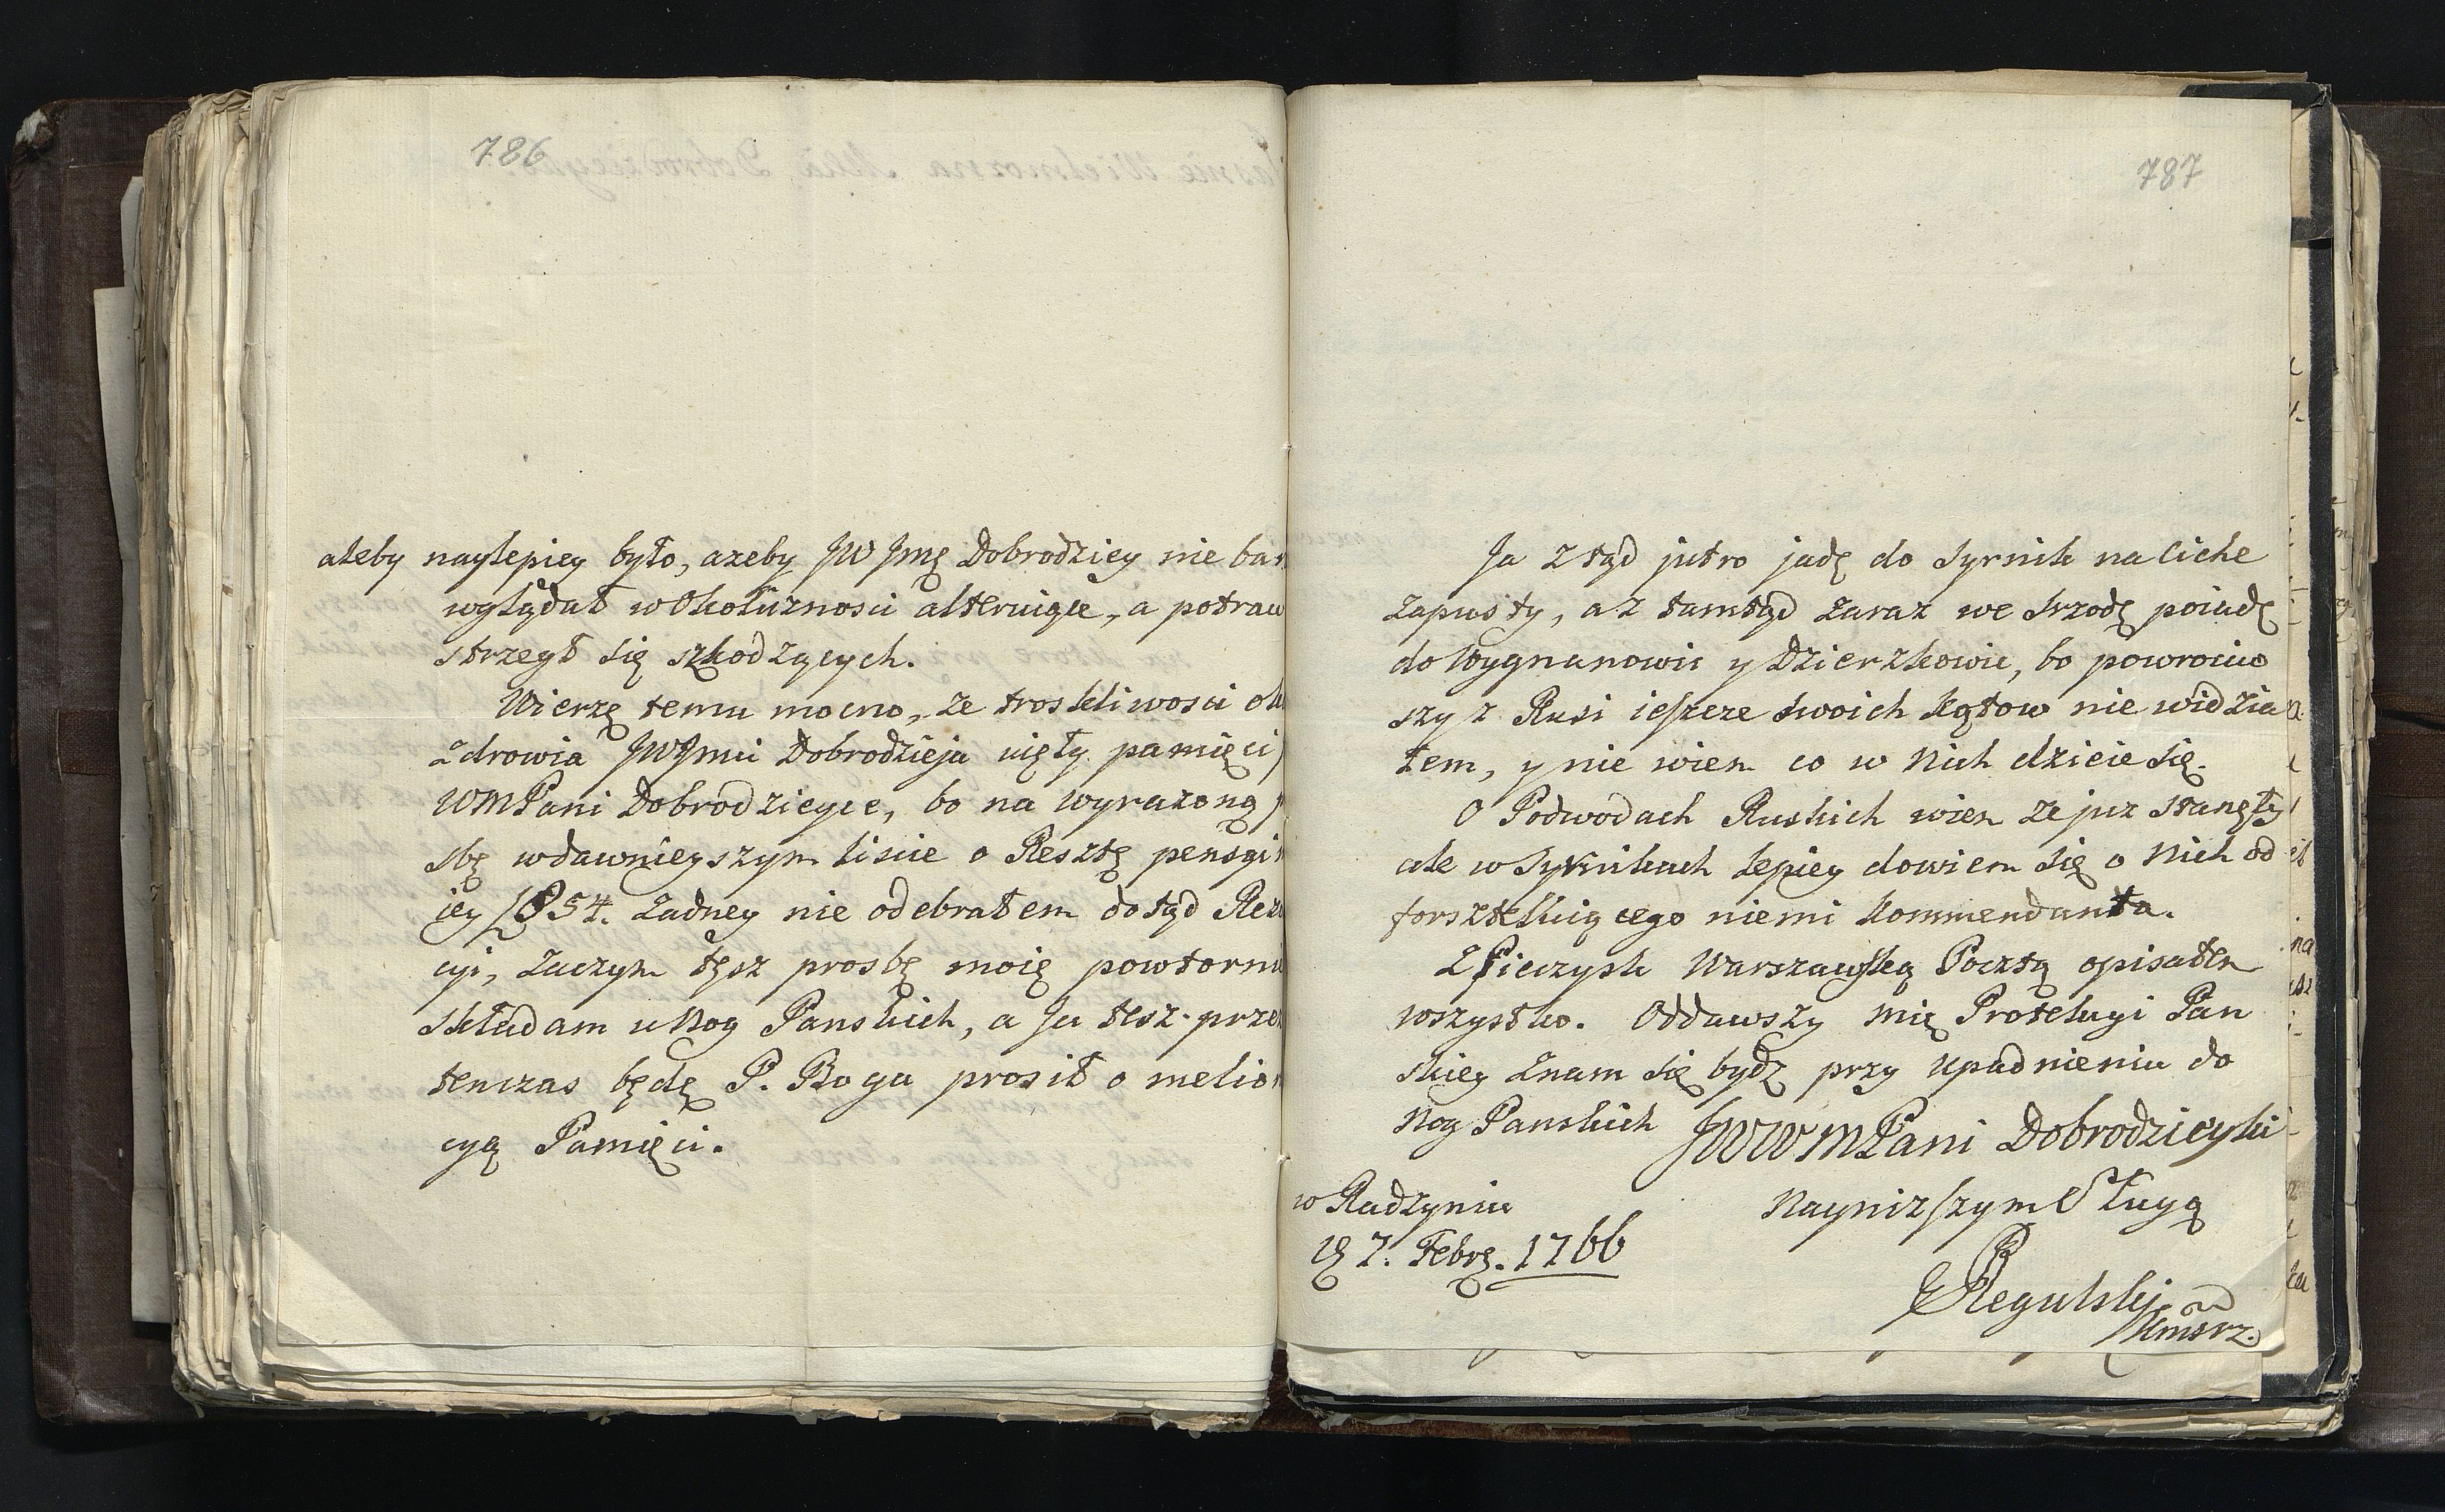 786
ależby naylepiey było, ażeby JW Jmę Dobrodziey nie bar
wglądał w Okoliznosci alteruiące, a potraw
strzegł się szkodzących.
Wierzę temu mocno, że troskliwosci ok
Zdrowia JWJmci Dobrodzieja uięły pamięci
WMPani Dobrodzieyce, bo na wyrazoną
sbę w dawnieyszym liscie o Resztę pensyi
iey 54. Zadney nie odebrałem dotąd Rezo
cyi, Zaczym tęsz prosbę moię powtornie
składam u Nog Panskich, a Ja tesz prze
tenczas będę P. Boga prosił o melior
cyą Pamięci.
787
Ja ztąd jutro jadę do Syrnik na Ciche
Zapusty, a z tamtąd zaraz we Srzodę poiadę
do Wygnanowic y Dzierzkowic, bo powrociw
szy z Rusi ieszcze swoich kątow nie widzia
łem, y nie wiem co w Nich dzieie się.
O Podwodach Ruskich wiem że juz stanęły
ale w Syrnikach lepiey dowiem się o Nich od
forsztelluiącego niemi Kommendanta.
Z Pieczysk Warszawską Pocztą opisałem
wszystko. Oddawszy mię Protekcyi Pan
skiey znam się bydź przy Upadnieniu do
Nog Panskich JWWMPani Dobrodzieyki
w Radzyniu
Naynizszym Sługą
7. Febrę. 1766
Regulski
Kmsrz.